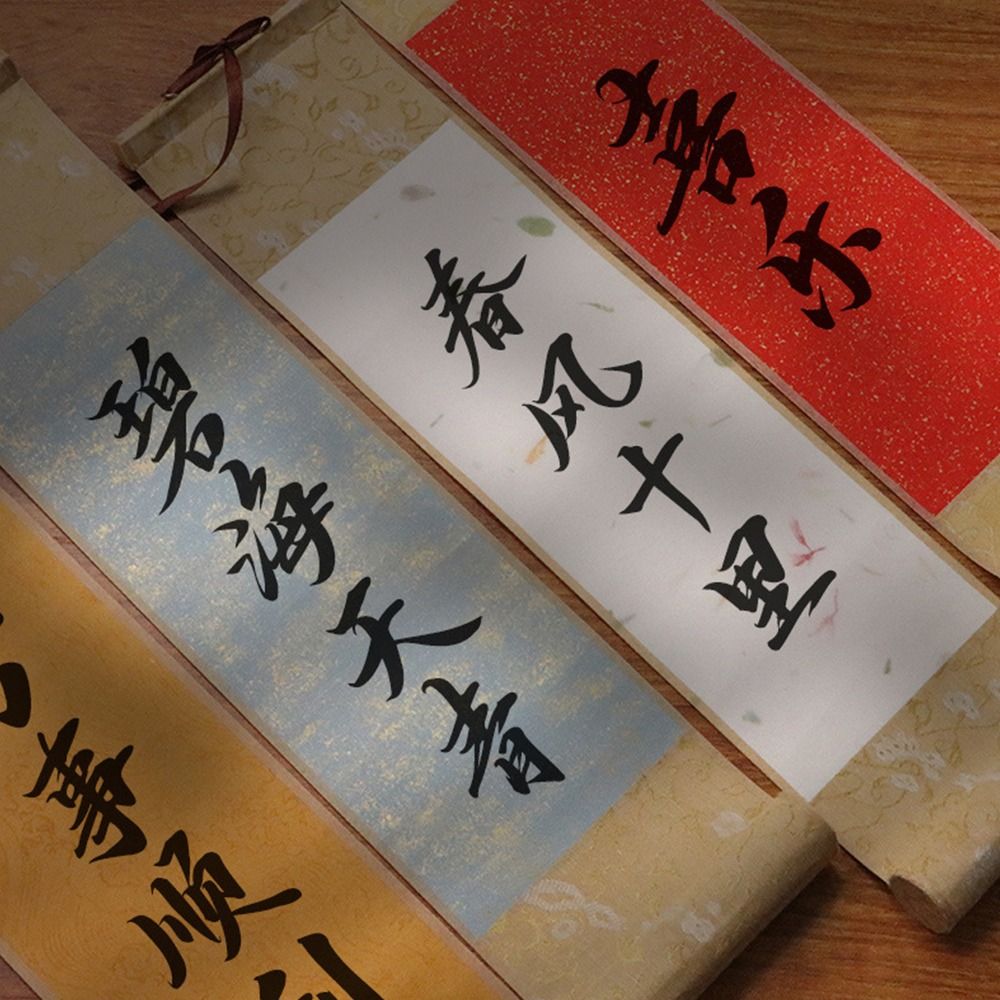 喜乐
春风十里
碧海天青
事顺利